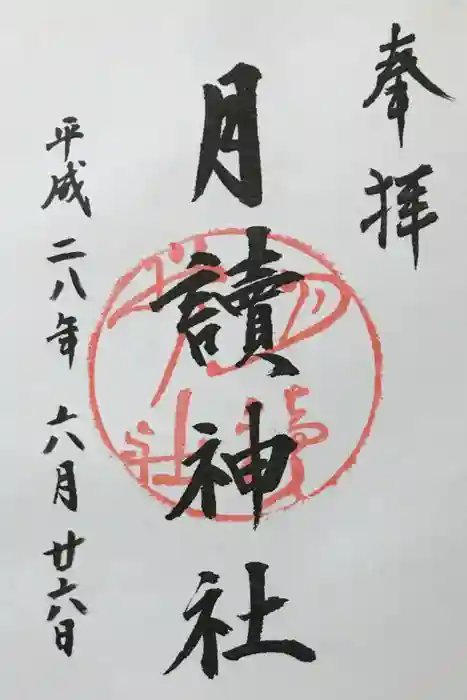 奉拝
月讀神社
平成二八年六月廿六日